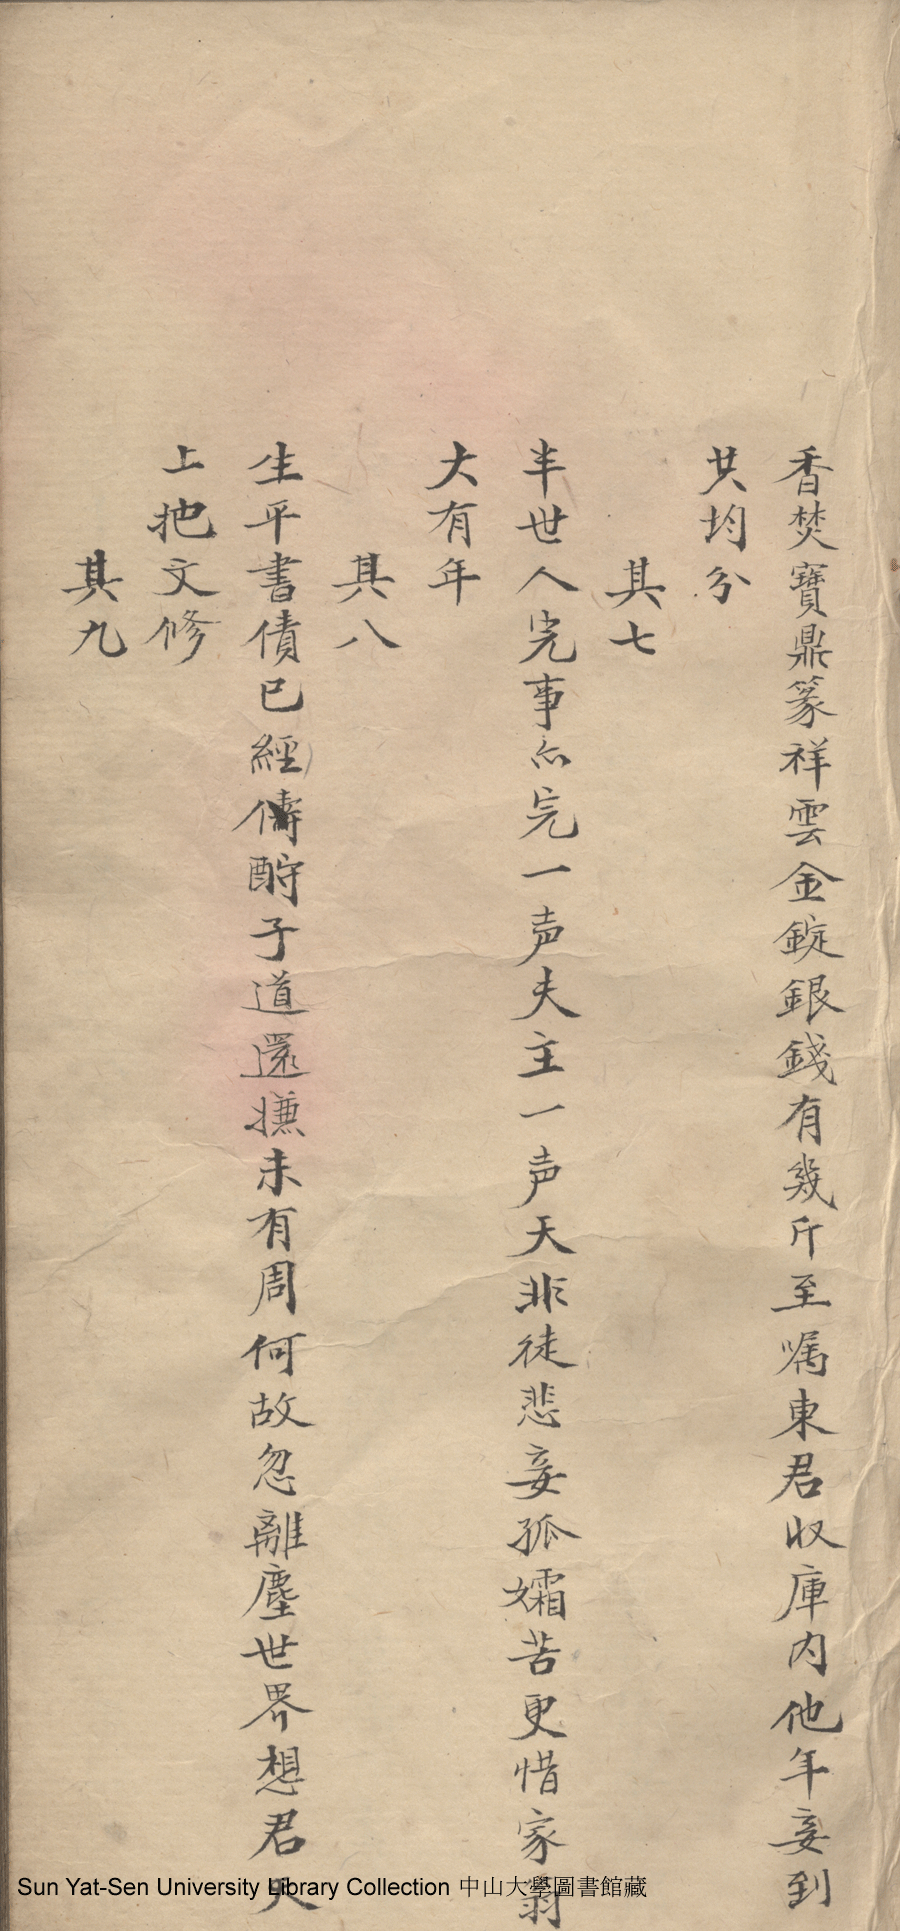 香焚寶鼎篆祥雲金錠銀錢有幾斤至嘱東君收庫内他年妾到
共均分
其七
半世人完事亦完一声夫主一声天非徒悲妾孤孀苦更惜家翁
大有年
其八
生平書債已經儔酧予道還嫌未有周何故忽離塵世界想君天
上把文修
其九
Sun Yat-Sen University Library Collection 中山大學圖書館藏